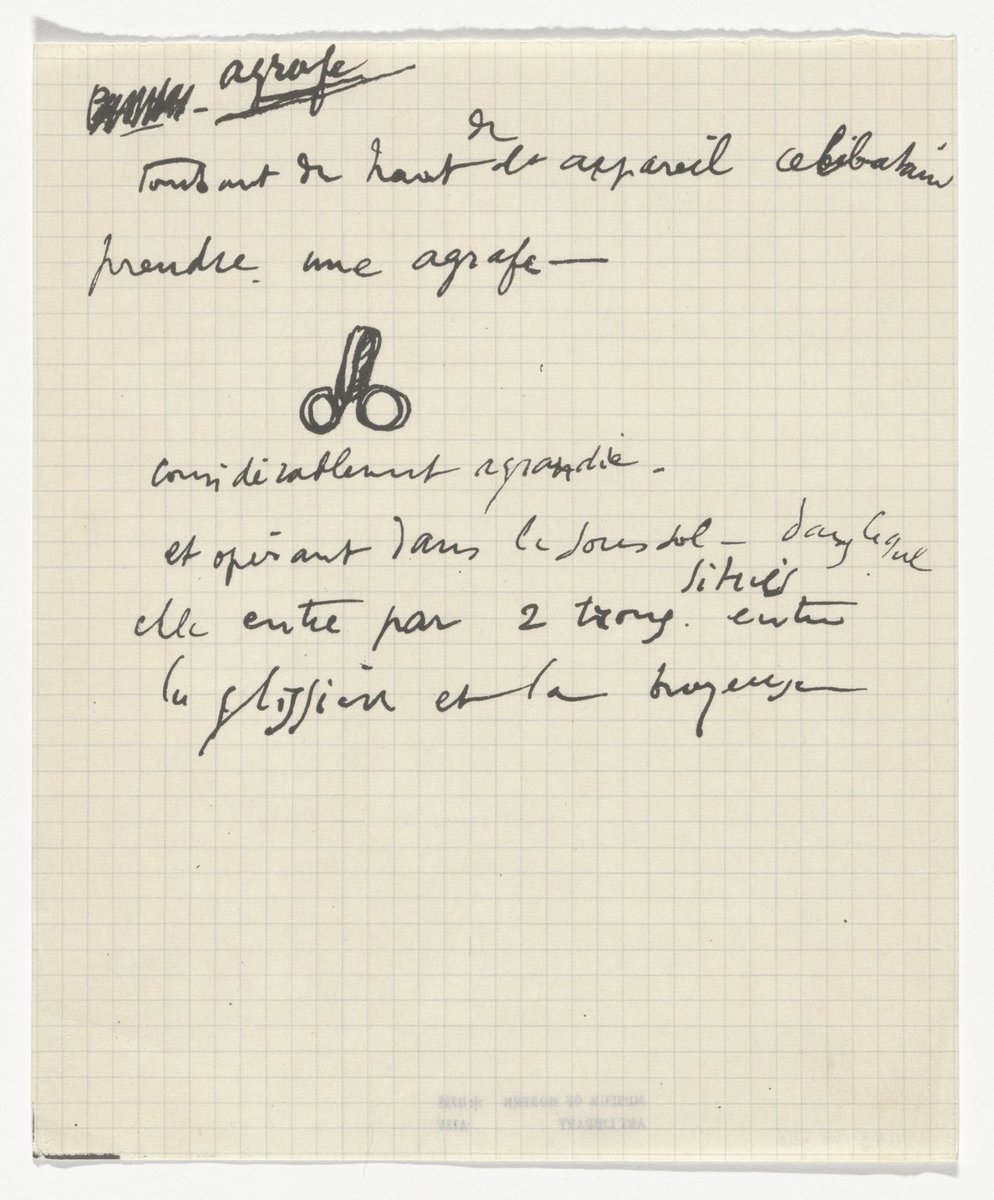 - agrafe
Tombant du haut de l'appareil célibataire
prendre une agrafe —
considérablement agrandie -
et opérant dans le sous sol - dans lequel
elle entre par 2 trous. situés entre
la glissière et la broyeuse
MUSEUM OF MODERN
ART LIBRARY